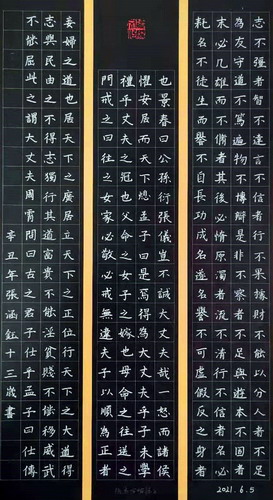 志不强者智不達言不信者行不果據財不能以分人者不足
為友守道不篤遍物不博辯是非不察者不足與遊本不固者
末必幾雄而不修者其後必惰原濁者流不清行不信者名必
耗名不徒生而譽不自長功成名遂名譽不可虛假反之身者
也景春曰公孫衍張儀豈不誠大丈夫哉一怒而諸侯
懼安居而天下熄孟子曰是焉得為大丈夫乎子未學
禮乎丈夫之冠也父命之女子之嫁也母命之往送之
門戒之曰往之女家必敬必戒無違夫子以順為正者
妾婦之道也居天下之廣居立天下之正位行天下之大道得
志與民由之不得志獨行其道富貴不能淫貧賤不能移威武
不能屈此之謂大丈夫周霄問曰古之君子仕乎孟子曰仕傳
辛丑年張涵鈺十三歲書
2021.6.5